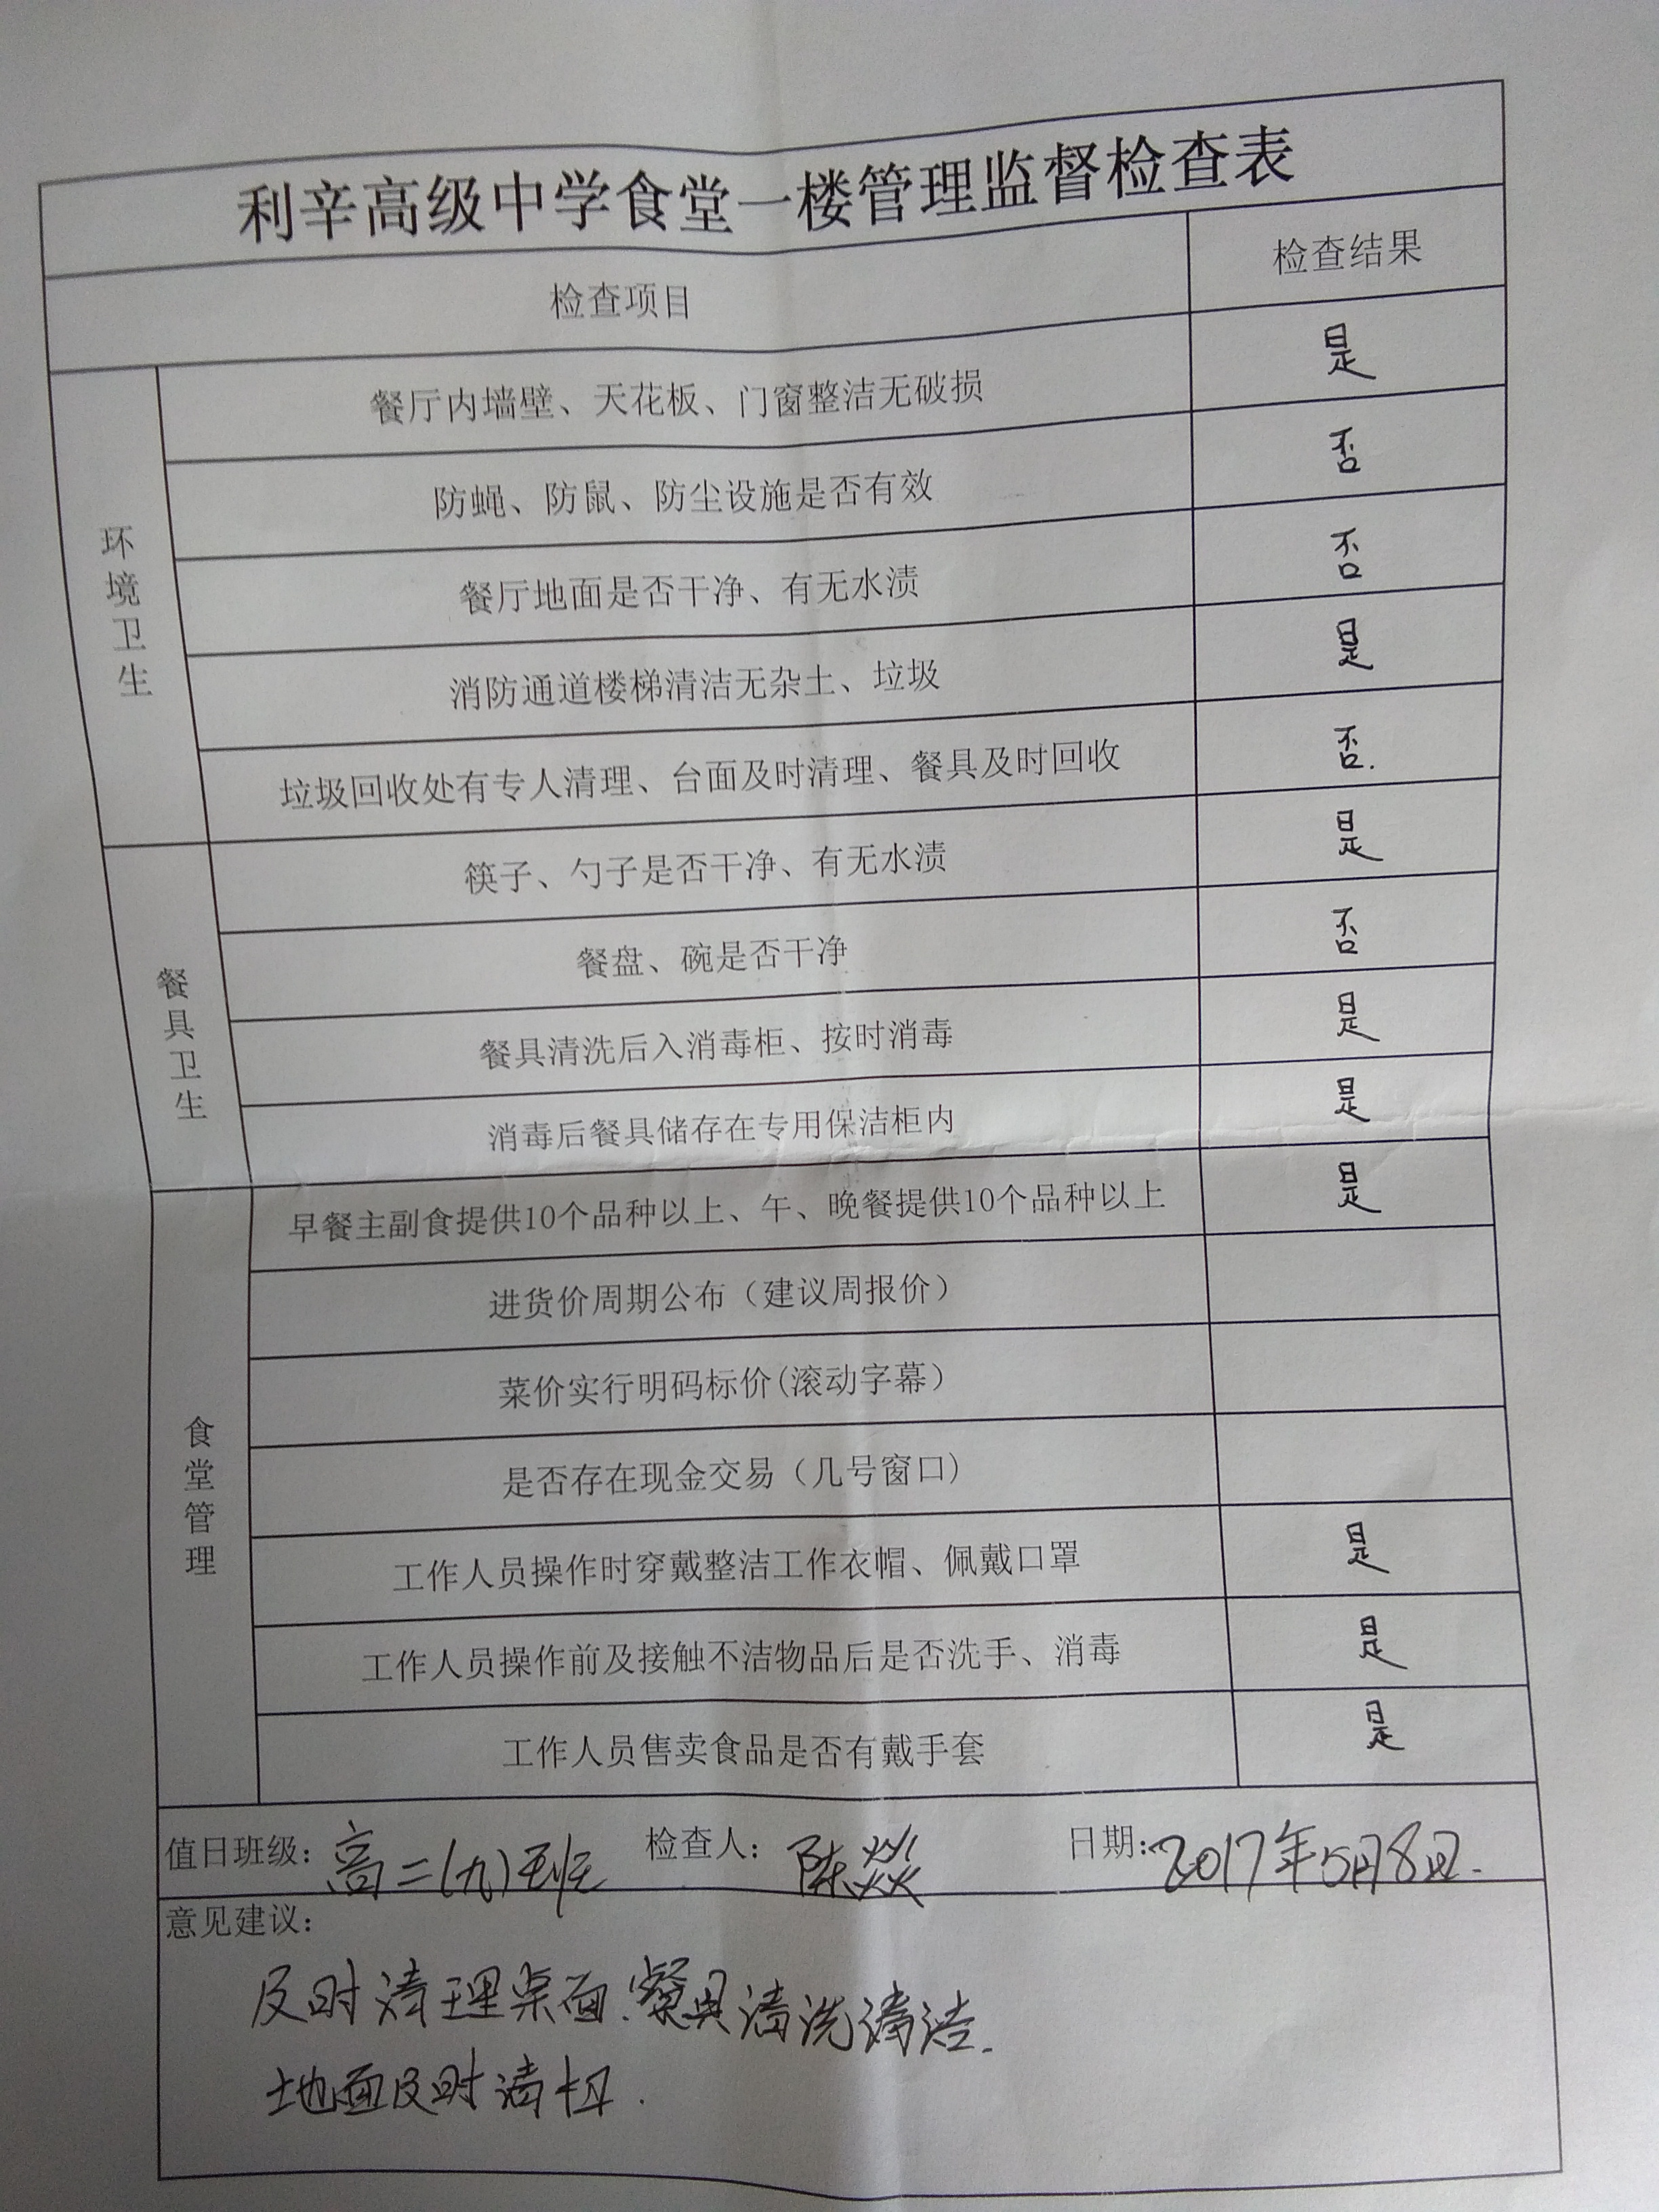 利辛高级中学食堂一楼管理监督检查表
检查项目 检查结果
环境卫生
餐厅内墙壁、天花板、门窗整洁无破损 是
防蝇、防鼠、防尘设施是否有效 否
餐厅地面是否干净、有无水渍 否
消防通道楼梯清洁无杂土、垃圾 是
垃圾回收处有专人清理、台面及时清理、餐具及时回收 否.
餐具卫生
筷子、勺子是否干净、有无水渍 是
餐盘、碗是否干净 否
餐具清洗后入消毒柜、按时消毒 是
消毒后餐具储存在专用保洁柜内 是
食堂管理
早餐主副食提供10个品种以上、午、晚餐提供10个品种以上 是
进货价周期公布（建议周报价）
菜价实行明码标价(滚动字幕）
是否存在现金交易（几号窗口）
工作人员操作时穿戴整洁工作衣帽、佩戴口罩 是
工作人员操作前及接触不洁物品后是否洗手、消毒 是
工作人员售卖食品是否有戴手套 是
值日班级：高二(九)班 检查人：陈燚 日期：2017年5月8日.
意见建议：
及时清理桌面.餐具清洗清洁.
地面及时清扫.